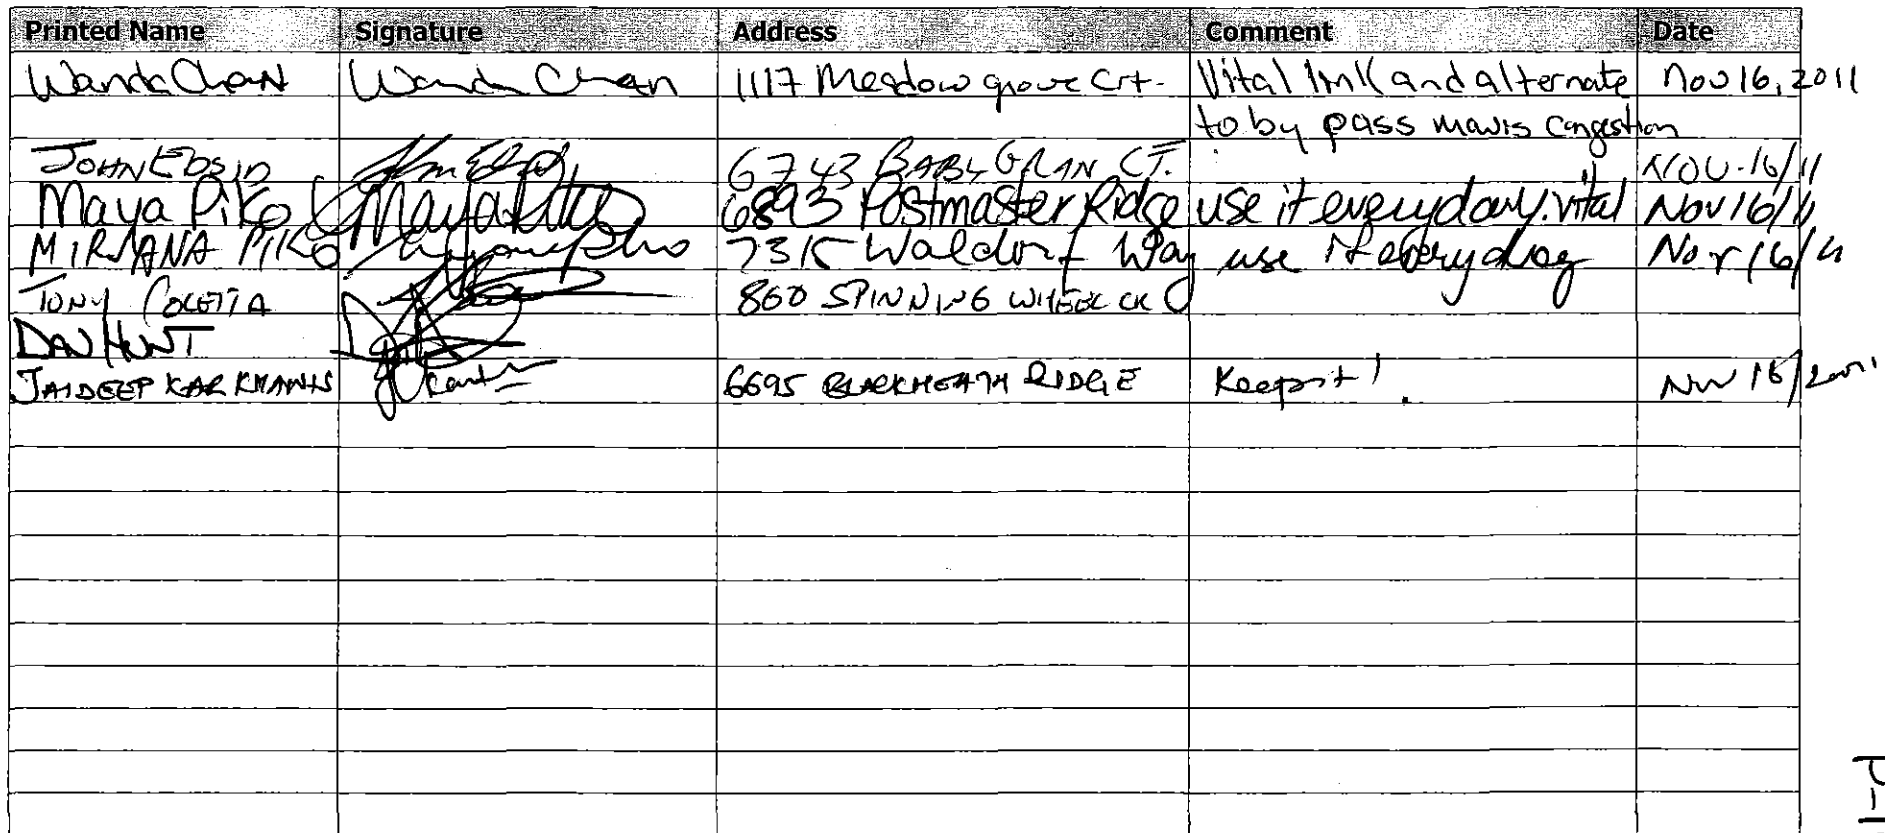 Printed Name Signature Address Comment Date
Wanda Chan Wanda Chan 1117 Meadow grove Crt. Vital link and alternate Nov 16, 2011
to by pass mavis congestion
JOHN 6743 BABY GRAN CT. NOV-16/11
Maya Piko Maya Piko 6893 Postmaster Ridge use it everyday. vital Nov 16/11
MIRJANA PIKO 7315 Waldorf Way use it everyday Nov 16/11
TONY COLETTA 860 SPINNING WHEEL CR
DAN HUNT
JAIDEEP KARKHANIS 6695 BLACKHEATH RIDGE Keep it! Nov 16/2011
P-1